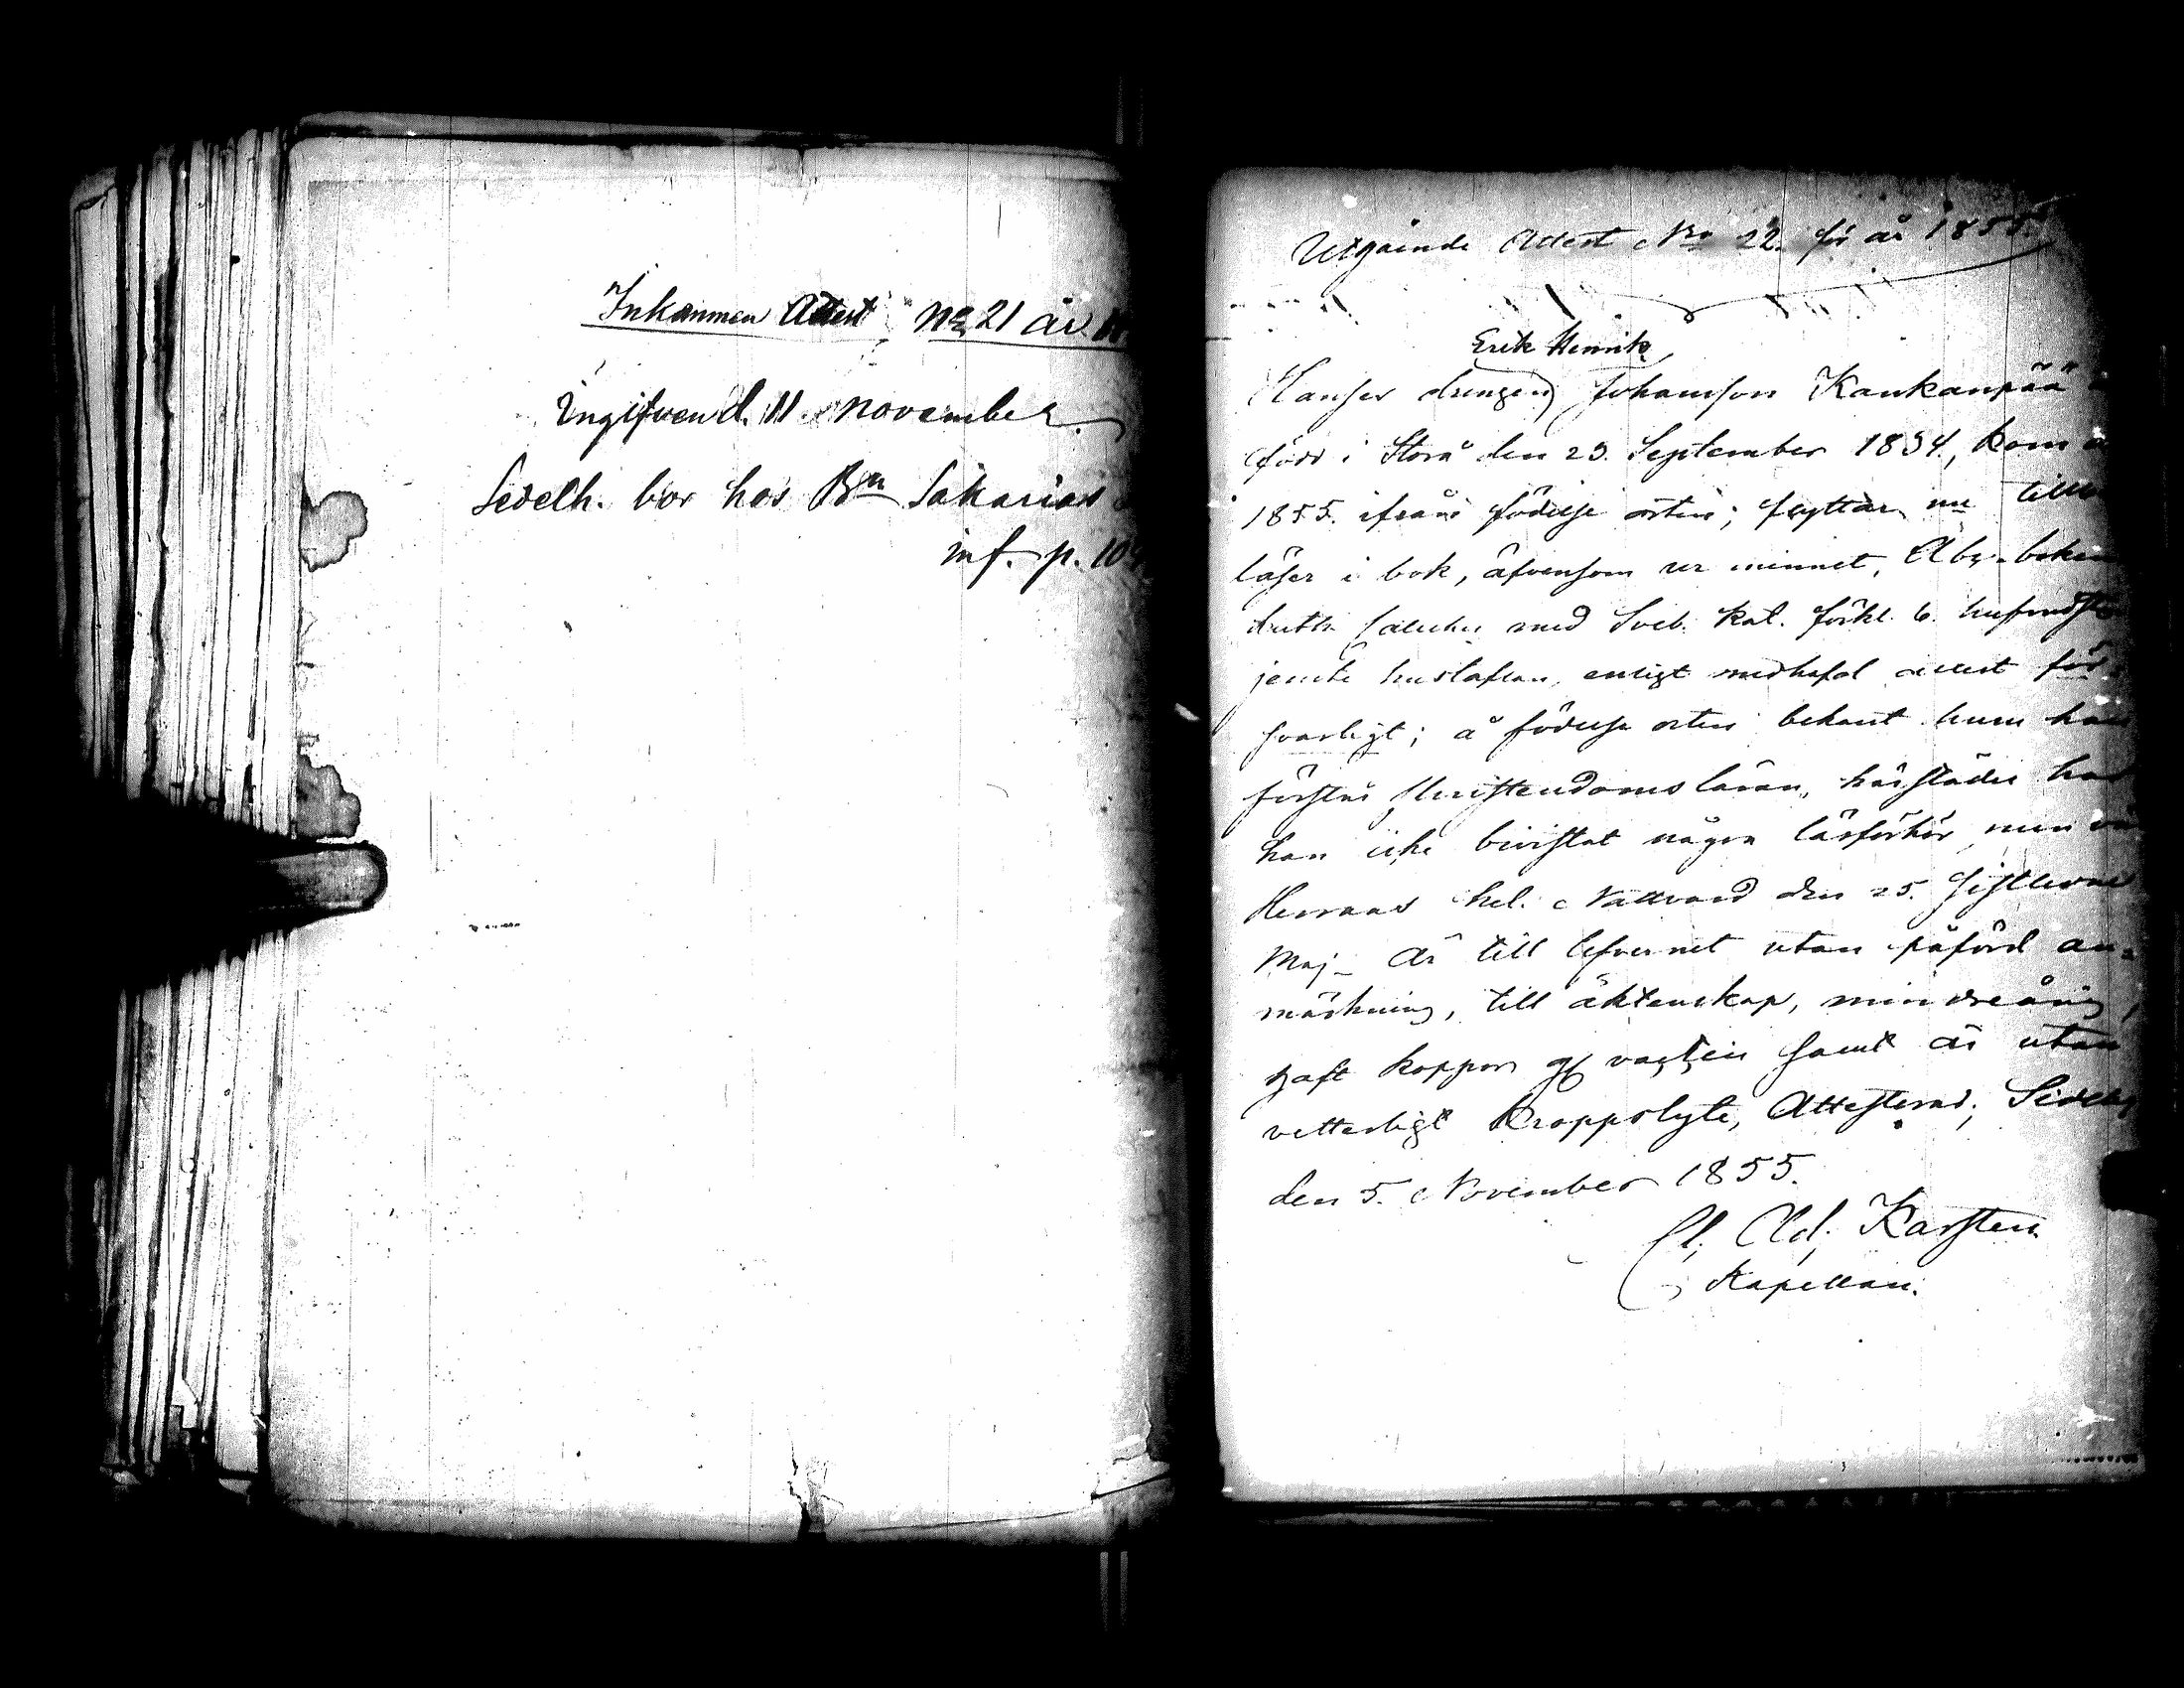 Inkommen Attest No 21 år
Ingifven d. 11 November
Sedelh. bor hos Bn Sakarias
inf. p. 10
Utgående Attest No 22. för år 1855.
Erik Henrik
drengen Johansson Kankanpää
född i Storå den 23. September 1834, kom
1855. ifrån födelse orten; flyttar nu
läser i bok, äfvensom ur minnet, Abc-boken
Luth. med Sveb. kat. förkl. 6. hufvudst
jemte hustaflan, enligt medhafd attest för-
svarligt; å födelse orten bekant huru han
förstår Christendoms läran, härstädes har
han icke bivistat några läsförhör, men
Herrans hel. Nattvard den 25. sistledne
Maj. Är till lefvernet utan påförd an-
märkning, till äktenskap, minderårig,
haft koppor gf vaccin samt är utan
vetterligt kroppslyte, Attesterad; Sideby
den 5. November 1855.
Cl. Ad. Karsten.
Kapellan.